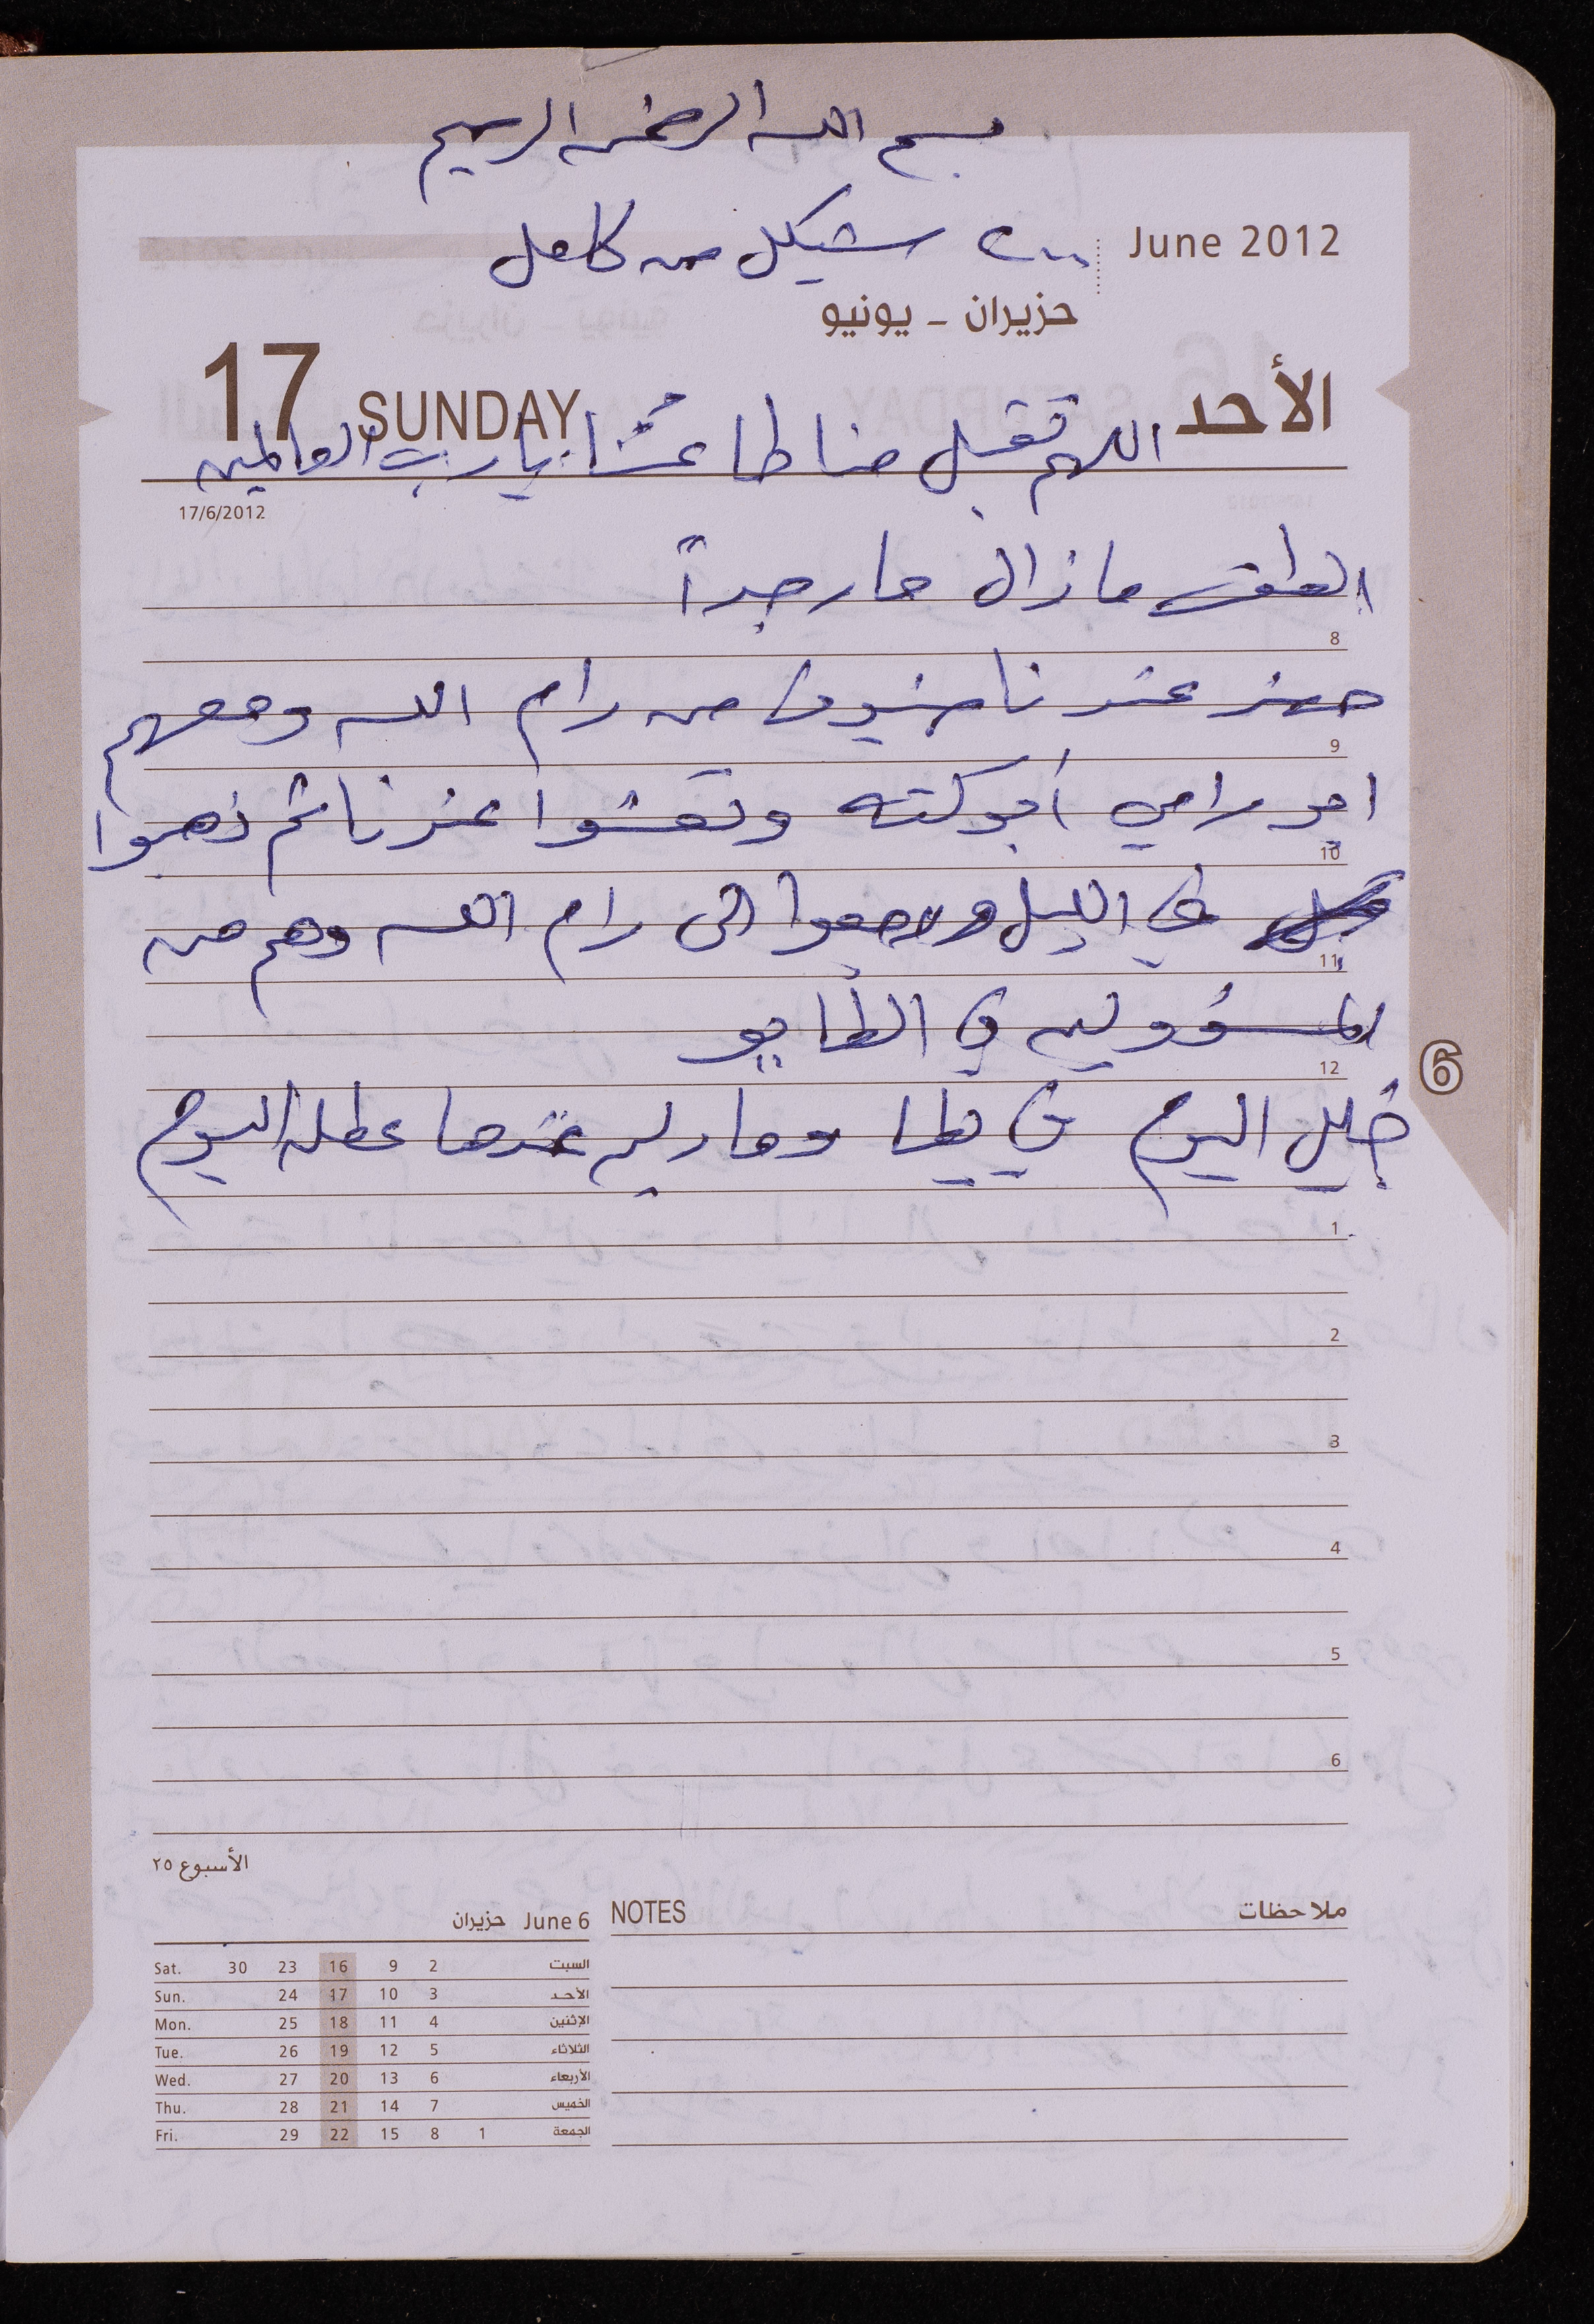 بسم الله الرحمن الرحيم
٢٠٠ شيكل من كامل
June 2012
حزيران - يونيو
17 SUNDAY الأحد
اللهم تقبل منا طاعتنا يا رب العالمين
17/6/2012
الطقس ما زال حار جداً
8
حضر عندنا من رام الله ومعهم
9
ابو رامي ابو كته وتعشوا عندنا ثم ذهبوا
10
في الليل ورجعوا الى رام الله وهم من
11
المسؤولين في الطابو
12
خليل اليوم في يطا ومارلين عندها عطلة اليوم
6
1
2
3
4
5
6
الأسبوع ٢٥
June 6 حزيران
NOTES ملاحظات
Sat. 30 23 16 9 2 السبت
Sun. 24 17 10 3 الأحد
Mon. 25 18 11 4 الإثنين
Tue. 26 19 12 5 الثلاثاء
Wed. 27 20 13 6 الأربعاء
Thu. 28 21 14 7 الخميس
Fri. 29 22 15 8 1 الجمعة